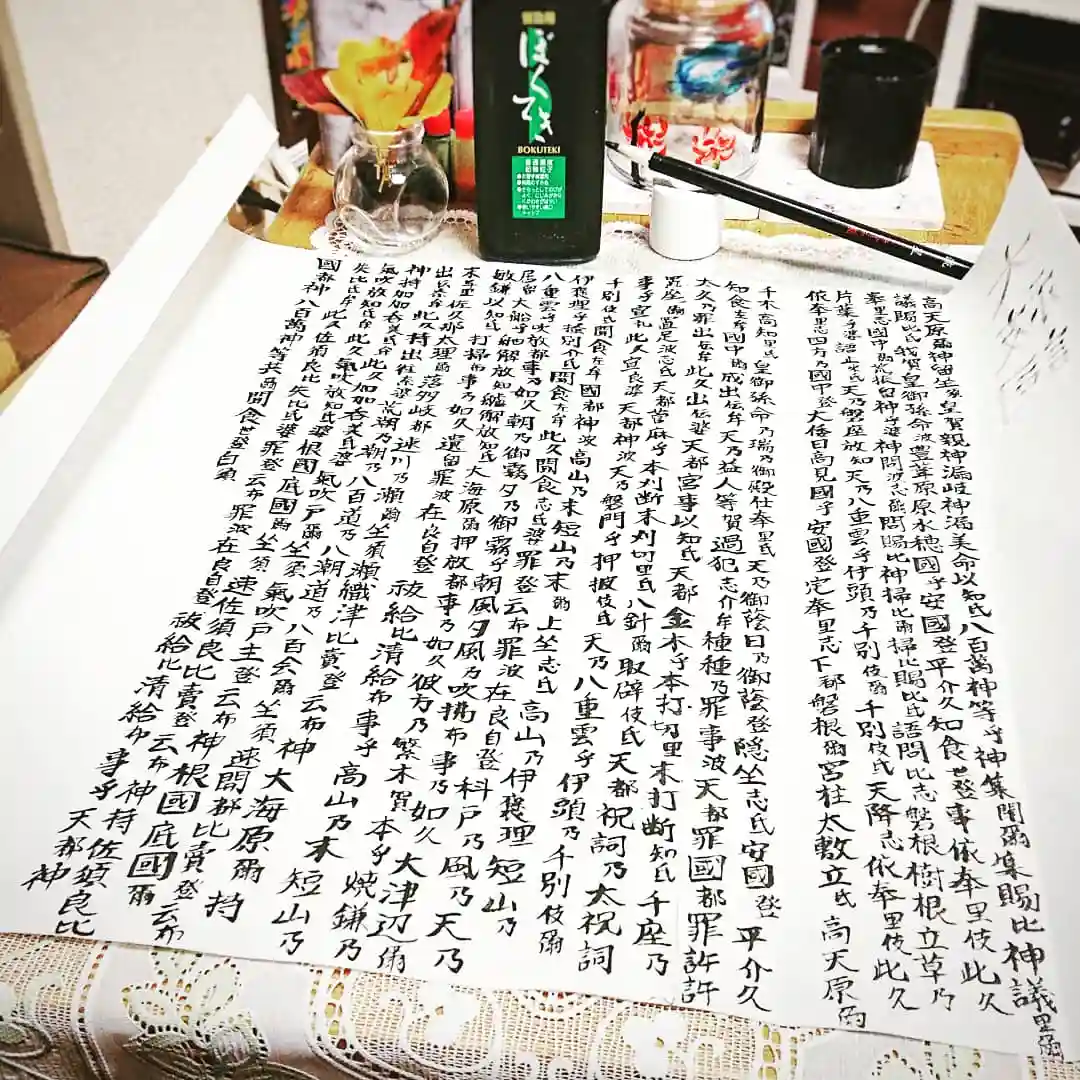 ぼくてき
BOKUTEKI
高天原爾神留坐須皇賀親神漏岐神漏美命以知氐八百萬神等乎神集閇爾集賜比神議里爾
議賜比氐我賀皇御孫命波豊葦原原水穂國乎安國登平介久知食世登事依奉里伎此久
奉里志國中爾荒振留神等婆神問波志爾問賜比神掃比爾掃比賜比氐語問比志磐根樹根立草乃
片葉乎語止氐天乃磐座放知天乃八重雲乎伊頭乃千別伎爾千別伎氐天降志依奉里伎此久
依奉里志四方乃國中登大倭日高見國乎安國登定奉里志下都磐根爾宮柱太敷立氐高天原爾
千木高知里氐皇御孫命乃瑞乃御殿仕奉里氐天乃御蔭日乃御蔭登隠坐志氐安國登平介久
知食左牟國中爾成出伝牟天乃益人等賀過犯志介牟種種乃罪事波天都罪國都罪許許
太久乃罪出伝牟此久出伝婆天都宮事以知氐天都金木乎本打切里末打断知氐千座乃
置座爾置足波志氐天都菅麻乎本刈断末刈切里氐八針爾取辟伎氐天都祝詞乃太祝詞
事乎宣礼此久宣良婆天都神波天乃磐門乎押披伎氐天乃八重雲乎伊頭乃千別伎爾
千別伎氐聞食左牟國都神波高山乃末短山乃末爾上坐志氐高山乃伊褒理短山乃
伊褒理乎掻別介氐聞食左牟此久聞食志氐婆罪登云布罪波在良自登科戸乃風乃天乃
八重雲乎吹放都事乃如久朝乃御霧夕乃御霧乎朝風夕風乃吹掃布事乃如久大津辺爾
居留大船乎舳解放知艫解放知氐大海原爾押放都事乃如久彼方乃繁木賀本乎焼鎌乃
敏鎌以知氐打掃布事乃如久遺留罪波在良自登祓給比清給布事乎高山乃末短山乃
末與佐久那太理爾落多岐都速川乃瀬爾坐須瀬織津比賣登云布神大海原爾持
出伝奈牟此久持出往奈婆荒潮乃潮乃八百道乃八潮道乃八百会爾坐須速開都比賣登云布
神持加加呑美氐牟此久加加呑美氐婆氣吹戸爾坐須氣吹戸主登云布神根國底國爾
氣吹放知氐牟此久氣吹放知氐婆根國底國爾坐須速佐須良比賣登云布神持佐須良比
失比氐牟此久佐須良比失比氐婆罪登云布罪波在良自登祓給比清給布事乎天都神
國都神八百萬神等共爾聞食世登白須